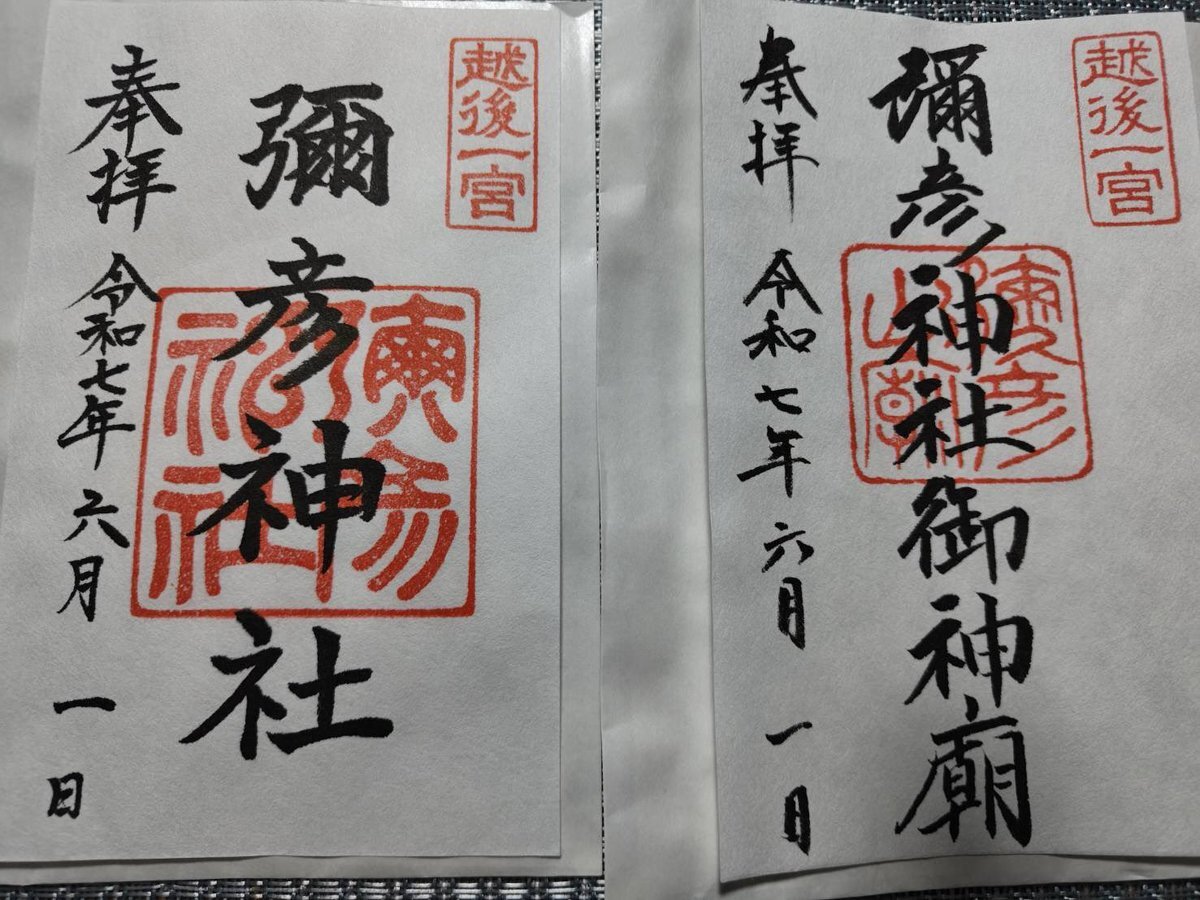 越後一宮
彌彦神社
彌彦神社
奉拝 令和七年 六月 一日
越後一宮
彌彦神社御神廟
奉拝 令和七年 六月 一日